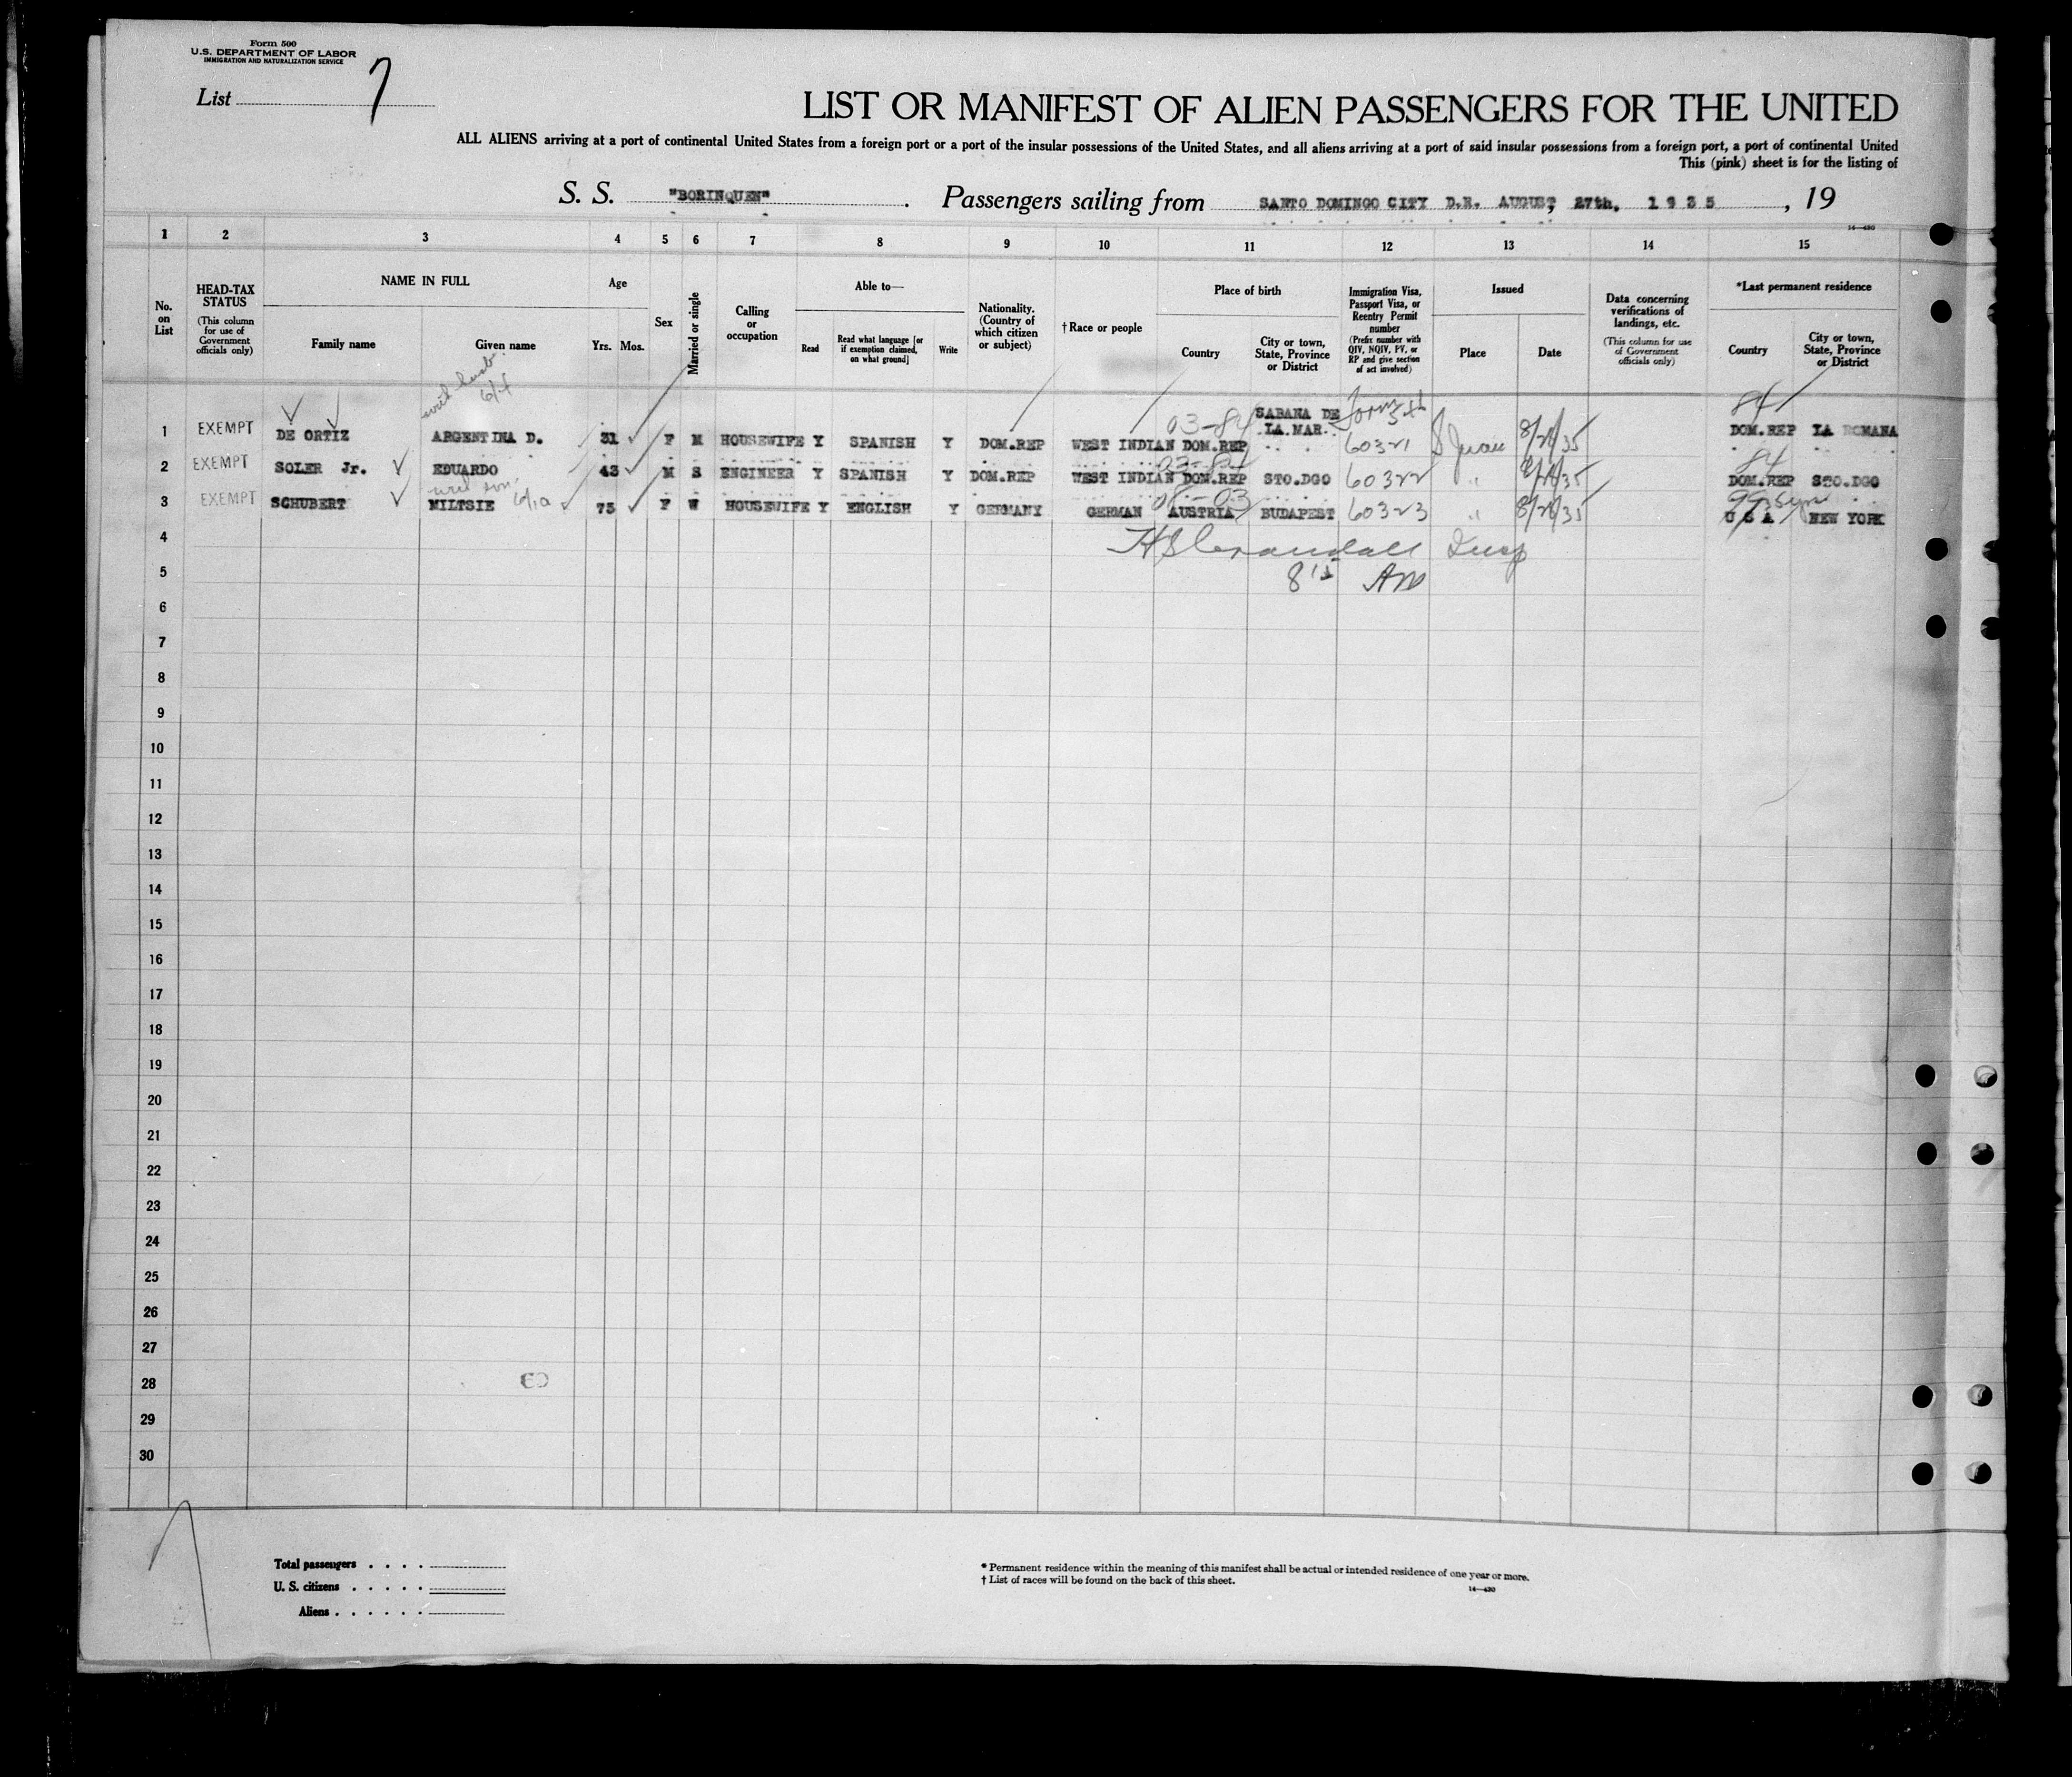 Form 500
U.S. DEPARTMENT OF LABOR
IMMIGRATION AND NATURALIZATION SERVICE
List 7
LIST OR MANIFEST OF ALIEN PASSENGERS FOR THE UNITED
ALL ALIENS arriving at a port of continental United States from a foreign port or a port of the insular possessions of the United States, and all aliens arriving at a port of said insular possessions from a foreign port, a port of continental United
This (pink) sheet is for the listing of
S. S. "BORINQUEN" . Passengers sailing from SANTO DOMINGO CITY D.R. AUGUST, 27th, 1935 , 19
14—430
1 2 3 4 5 6 7 8 9 10 11 12 13 14 15
No. on List
HEAD-TAX STATUS (This column for use of Government officials only)
NAME IN FULL
Family name Given name
Age
Yrs. Mos.
Sex
Married or single
Calling or occupation
Able to—
Read
Read what language [or if exemption claimed, on what ground]
Write
Nationality. (Country of which citizen or subject)
† Race or people
Place of birth
Country
City or town, State, Province or District
Immigration Visa, Passport Visa, or Reentry Permit number (Prefix number with QIV, NQIV, PV, or RP and give section of act involved)
Issued
Place Date
Data concerning verifications of landings, etc. (This column for use of Government officials only)
*Last permanent residence
Country
City or town, State, Province or District
03-84 SABANA DE 84
1 EXEMPT DE ORTIZ ARGENTINA D. 31 F M HOUSEWIFE Y SPANISH Y DOM.REP WEST INDIAN DOM.REP LA MAR. 60321 S Juan 8/28/35 DOM.REP LA ROMANA
84
2 EXEMPT SOLER Jr. EDUARDO 43 M S ENGINEER Y SPANISH Y DOM.REP WEST INDIAN DOM.REP STO.DGO 60322 " 8/28/35 DOM.REP STO.DGO
3 EXEMPT SCHUBERT MILTSIE 75 F W HOUSEWIFE Y ENGLISH Y GERMANY GERMAN AUSTRIA BUDAPEST 60323 " 8/28/35 U S A NEW YORK
4
5 AM
6
7
8
9
10
11
12
13
14
15
16
17
18
19
20
21
22
23
24
25
26
27
28
29
30
Total passengers . . . .
U. S. citizens . . . . .
Aliens . . . . . .
* Permanent residence within the meaning of this manifest shall be actual or intended residence of one year or more.
† List of races will be found on the back of this sheet.
14—430